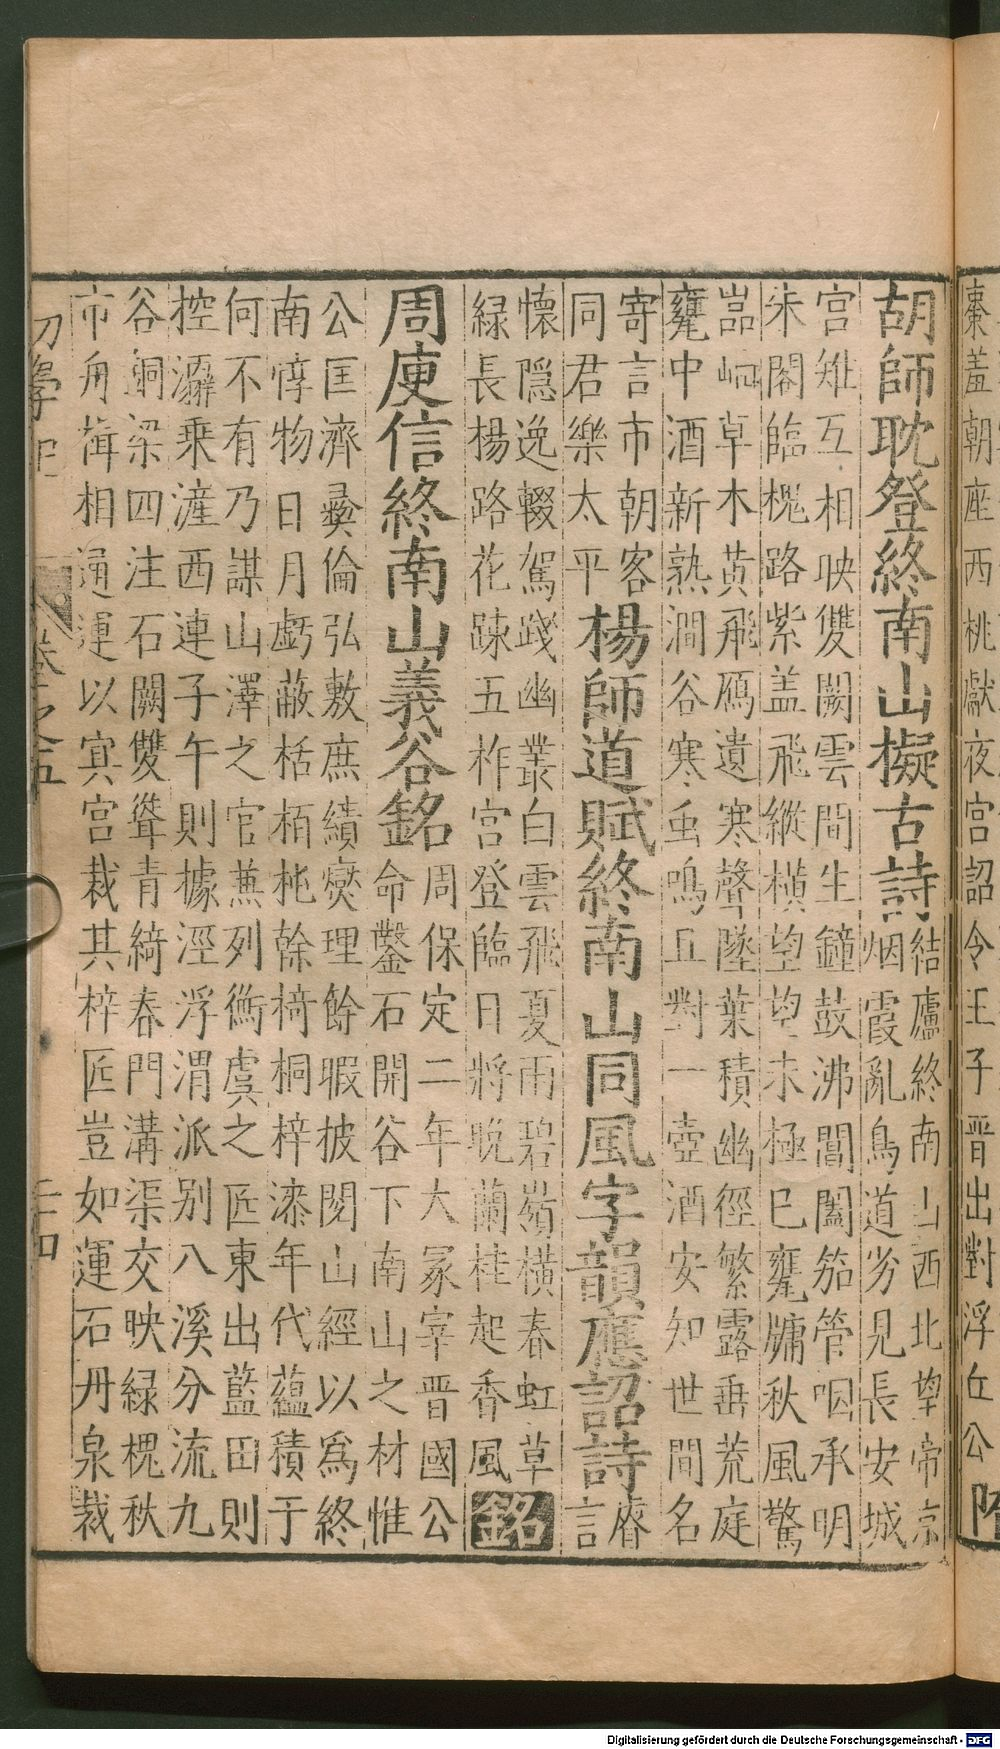 棗羞朝座西桃獻夜宮詔令王子晋出對浮丘公隋
胡師耽登終南山擬古詩
結廬終南山西北望帝京
烟霞亂鳥道岁見長安城
宮雉互相映雙闕雲間生鐘鼓沸閶闔笳管咽承明
朱閣臨槐路紫盖飛縱橫望望未極已甕牖秋風驚
嵓岫草木黃飛鴈遺寒聲墜葉積幽徑繁露垂荒庭
甕中酒新熟澗谷寒虫鳴且對一壺酒安知世間名
寄言市朝客
同君樂太平
楊師道賦終南山同風字韻應詔詩
睠
言
懷隠逸輟駕踐幽叢白雲飛夏雨碧嶺橫春虹草
緑長楊路花踈五柞宮登臨日將晚蘭桂起香風
銘
周庾信終南山義谷銘
周保定二年大冢宰晋國公
命鑿石開谷下南山之材惟
公匡濟彛倫弘敷庶績爕理餘暇披閱山經以爲終
南惇物日月虧蔽栝栢桃榦椅桐梓漆年代蘊積于
何不有乃謀山澤之官兼列衡虞之匠東出藍田則
控灞乗滻西連子午則據涇浮渭派别八溪分流九
谷銅梁四注石闕雙聳青綺春門溝渠交映緑槐秋
市舟楫相通運以寘宮裁其梓匠豈如運石丹泉裁
初學記
卷之五
二十四
Digitalisierung gefördert durch die Deutsche Forschungsgemeinschaft - DFG